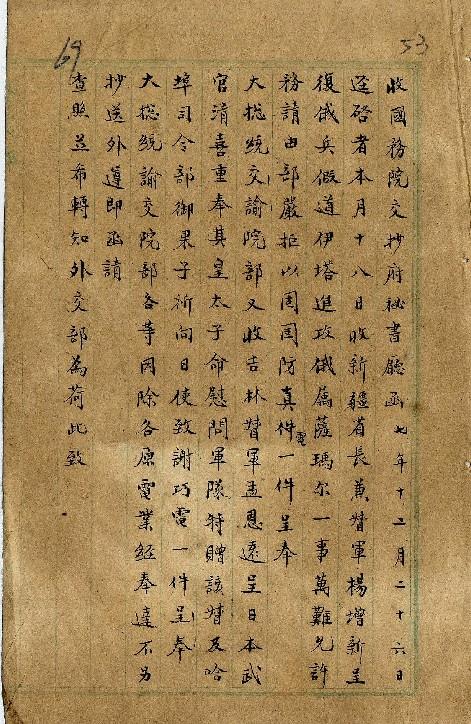 53
69
收國務院交抄府祕書廳函 七年十二月二十六日
逕啓者本月十八日收新疆省長兼督軍楊增新呈
復俄兵假道伊塔進攻俄属薩瑪尔一事萬難允許
務請由部嚴拒以固国防真電一件呈奉
大総統交諭院部又收吉林督軍孟恩遠呈日本武
官清喜重奉其皇太子命慰問軍隊特贈該督及哈
埠司令部御果子祈向日使致謝巧電一件呈奉
大総統諭交院部各等因除各原電業經奉達不另
抄送外違即函請
查照並布轉知外交部為荷此致